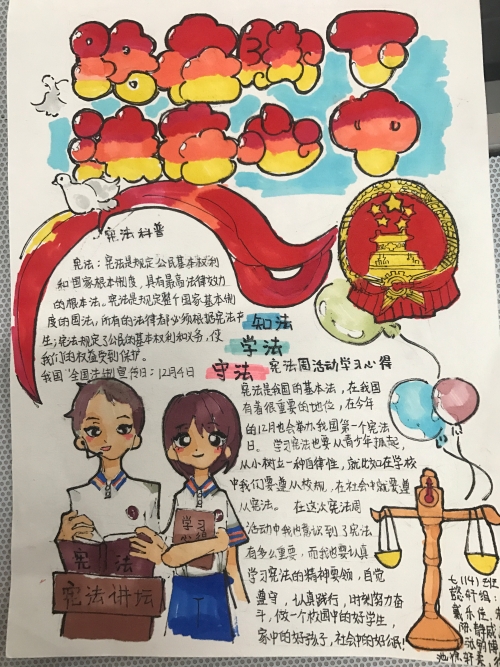 宪法科普
宪法：宪法是规定公民基本权利
和国家根本制度，具有最高法律效力
的根本法。宪法是规定整个国家基本制
度的国法，所有的法律都必须根据宪法产
生；宪法规定了公民的基本权利和义务，使
我们的权益受到保护。
我国"全国法制宣传日：12月4日
知法
学法
守法
宪法周活动学习心得
宪法是我国的基本法，在我国
有着很重要的地位，在今年
的12月也会举办我国第一个宪法
日。学习宪法也要从青少年抓起，
从小树立一种自律性，就比如在学校
中我们要遵从校规，在社会中就要遵
从宪法。在这次宪法周
活动中我也意识到了宪法
有多么重要，而我也要认真
学习宪法的精神要领，自觉
遵守，认真践行，时刻努力奋
斗，做一个校园中的好学生，
家中的好孩子，社会中的好公民！
学习
心得
宪法
宪法讲坛
七(14)班